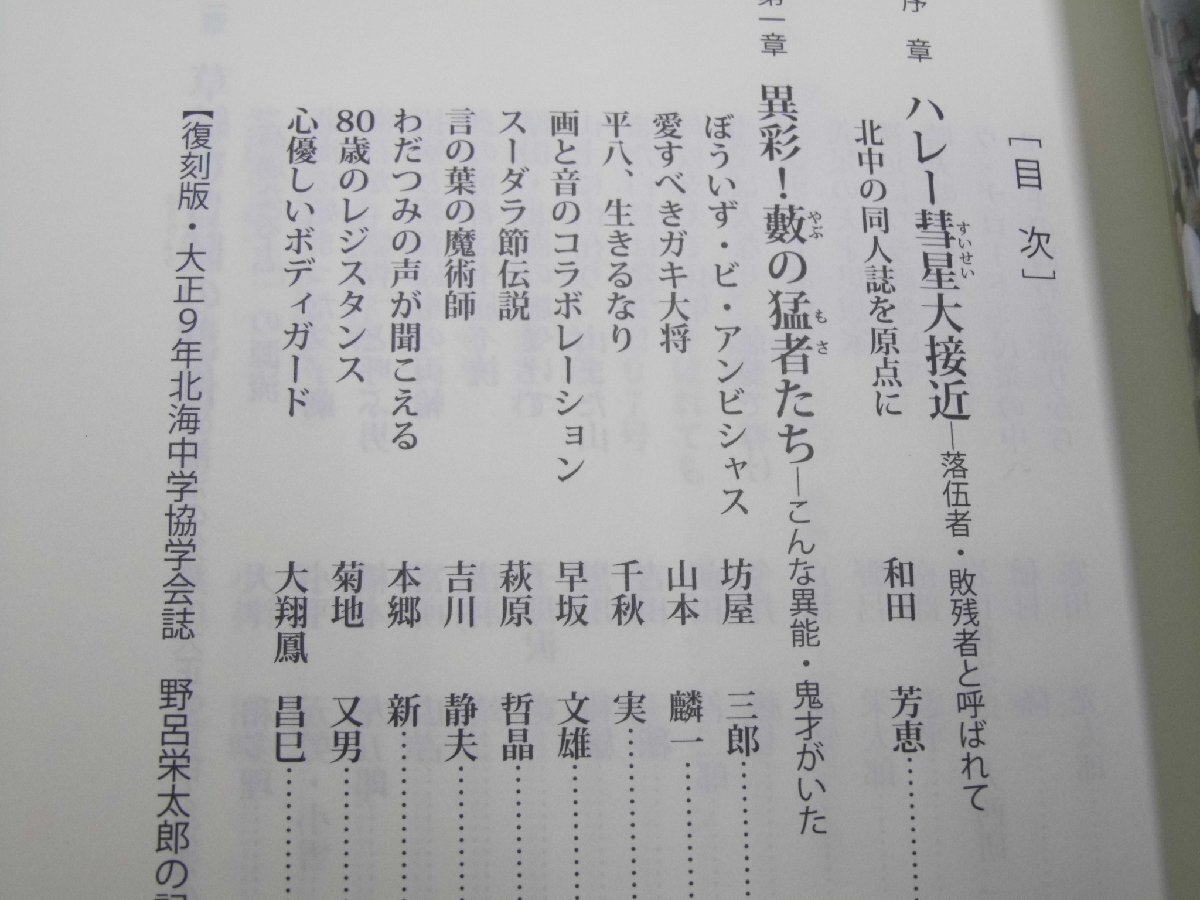 ［目次］
序章 ハレー彗星大接近―落伍者・敗残者と呼ばれて
すいせい
北中の同人誌を原点に 和田 芳恵…………
第一章 異彩！藪の猛者たち―こんな異能・鬼才がいた
やぶ もさ
ぼういず・ビ・アンビシャス 坊屋 三郎…………
愛すべきガキ大将 山本 麟一…………
平八、生きるなり 千秋 実…………
画と音のコラボレーション 早坂 文雄…………
スーダラ節伝説 萩原 哲晶…………
言の葉の魔術師 吉川 静夫…………
わだつみの声が聞こえる 本郷 新…………
80歳のレジスタンス 菊地 又男…………
心優しいボディガード 大翔鳳 昌巳…………
【復刻版・大正９年北海中学協学会誌 野呂栄太郎の記